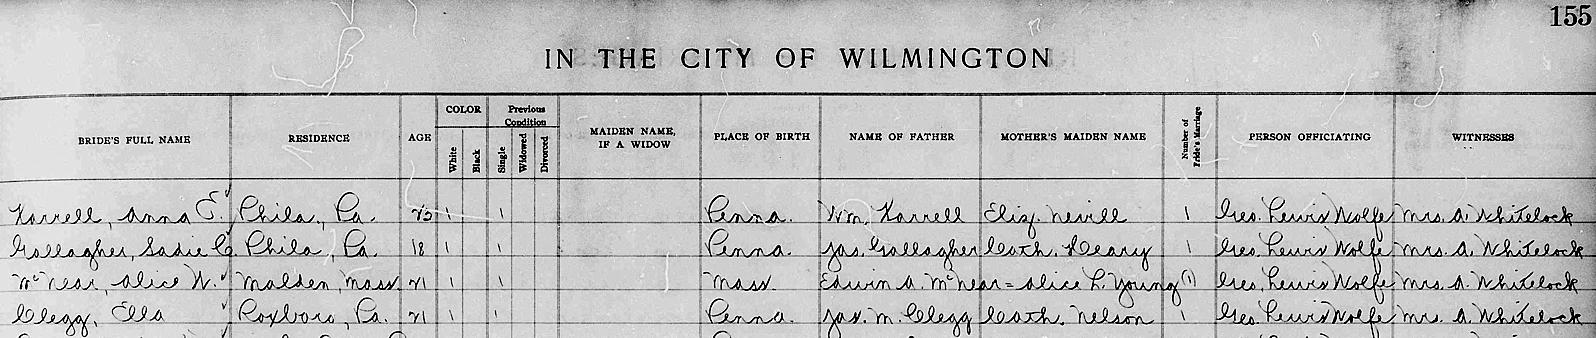 155
IN THE CITY OF WILMINGTON
BRIDE'S FULL NAME RESIDENCE AGE COLOR White Black Previous Condition Single Widowed Divorced MAIDEN NAME, IF A WIDOW PLACE OF BIRTH NAME OF FATHER MOTHER'S MAIDEN NAME Number of Bride's Marriage PERSON OFFICIATING WITNESSES
Farrell, Anna E. Phila., Pa. 23 1 1 Penna. Wm. Farrell Eliz. Nevill 1 Geo. Lewis Wolfe Mrs. A. Whitelock
Gallagher, Sadie C. Phila., Pa. 18 1 1 Penna. Jas. Gallagher Cath. Heary 1 Geo. Lewis Wolfe Mrs. A. Whitelock
McNear, Alice W. Malden, Mass. 21 1 1 Mass. Edwin A. McNear - Alice L. Young (1) Geo. Lewis Wolfe Mrs. A. Whitelock
Clegg, Ella Roxboro, Pa. 21 1 1 Penna. Jas. M. Clegg Cath. Nelson 1 Geo. Lewis Wolfe Mrs. A. Whitelock